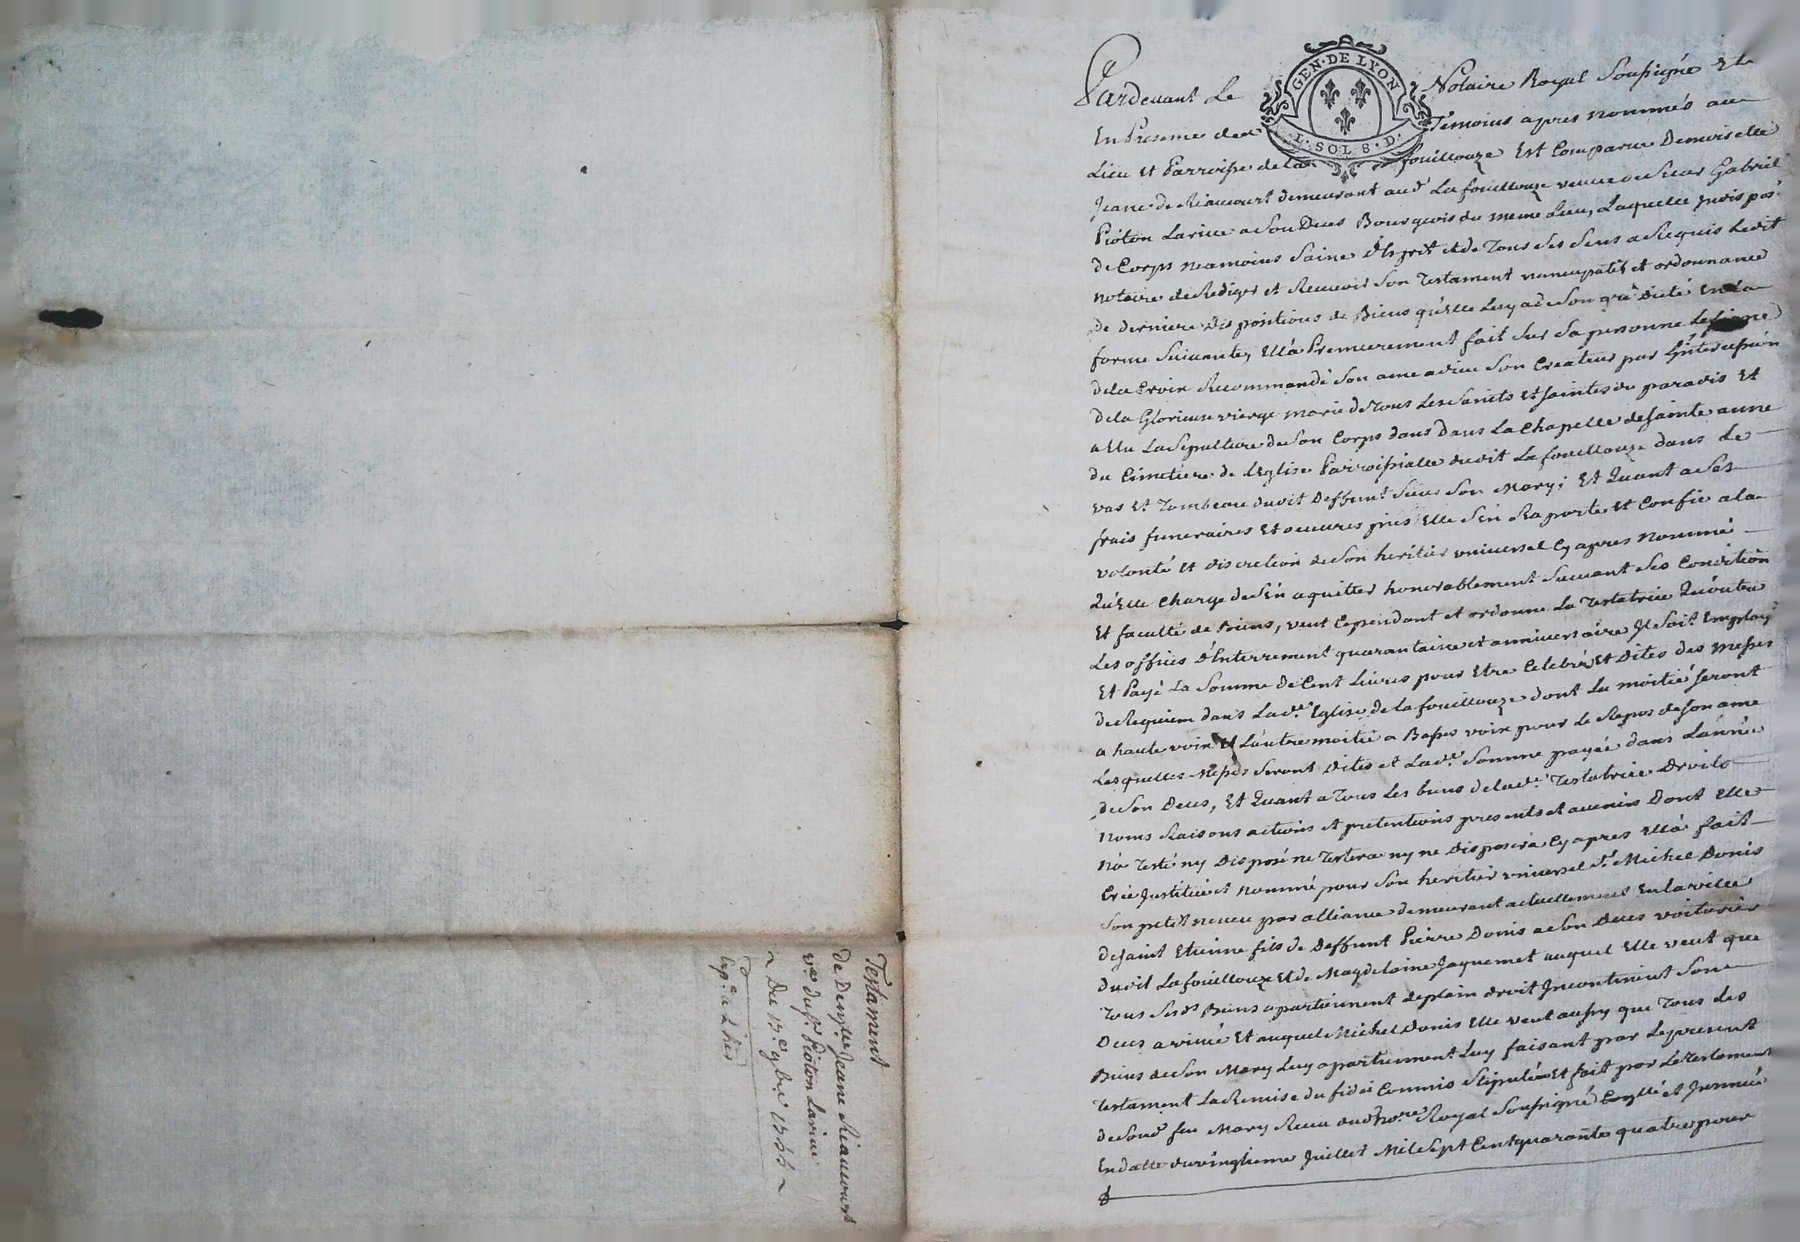 GEN·DE LYON
L·SOL 8·D·
Pardevant Le Notaire Royal Soussigné Et
En Presence des Temoins apres nommés au
Lieu et Parroisse de la fouillouze Est Comparue Demoiselle
Jeanne de Riaucourt demeurant aud. La fouillouze veuve de Sieur Gabriel
Pioton Larive a Son Deces Bourgeois du meme Lieu, Laquelle
de Corps neamoins Saine d'Esprit et de Tous Ses Sens a Requis Ledit
Notaire de Rediger et Recevoir Son Testament nuncupatif et ordonnance
de derniere dispositions de Biens qu'Elle Luy a de Son gré dicté En la
forme Suivante, Ell'a Premierement fait Sur Sa personne Le Signe
de la Croix Recommandé Son ame a dieu Son Createur par L'intercession
De la Glorieuse vierge marie de Tous Les Saints et Saintes du paradis Et
a Elu La Sepulture de Son Corps dans Dans La Chapelle de Sainte anne
du Cimetiere de L'Eglise Parroissialle dudit La fouillouze dans Le
vas Et Tombeau dudit Deffunt Sieur Son Mary; Et Quant a Ses
frais funeraires Et oeuvres pies Elle S'en Raporte et Confie a la
volonté et discretion de Son heritier universel Cy apres Nommé
Qu'Elle Charge de S'En aquitter honorablement Suivant Ses Condition
Et faculté de Biens, veut Cependant et ordonne La Testatrice Qu'outre
Les offices d'Enterrement quarantaine et anniversaire Il Soit Employé
Et Payé La Somme De Cent Livres pour Etre Celebré Et Dites des Messes
de Requiem dans Lad.e Eglise de La fouillouze dont La moitié Seront
a haute voix Et L'autre moitié a Basses voix pour Le Repos de Son ame
Lesquelles Messes Seront dites et Lad.e Somme payée dans L'année
de Son Deces, Et Quant a Tous Les biens de lad.e Testatrice Droits
Noms Raisons actions et pretentions presents et avenirs Dont Elle
N'a Testé ny Disposé ne Testera ny ne Disposera Cy apres Ell'a fait
Créé Institué et Nommé pour Son heritier universel S.r Michel Donis
Son petit neveu par alliance demeurant actuellement En la ville
de Saint Etienne fils de Deffunt Pierre Donis a Son Deces voiturier
dudit La fouillouze Et de Magdelaine Jaquemet auquel Elle veut que
Tous Sesd.s Biens apartiennent de plain droit Incontinent Son
Deces arrivé Et auquel Michel Donis Elle veut aussy que Tous Les
Biens de Son Mary Luy apartiennent Luy faisant par Le present
Testament La Remise du fidei Commis Stipulé Et fait par Le Testament
de Sond. feu Mary Recu dud. No.re Royal Soussigné Con.llé et Insinué
En datte du vingtieme Juillet Mil Sept Cent quarante quatre pour
Testament
de Dem.lle Jeanne Riaucourt
v.ve du S.r Pioton Larive
Du 13.e 9.bre